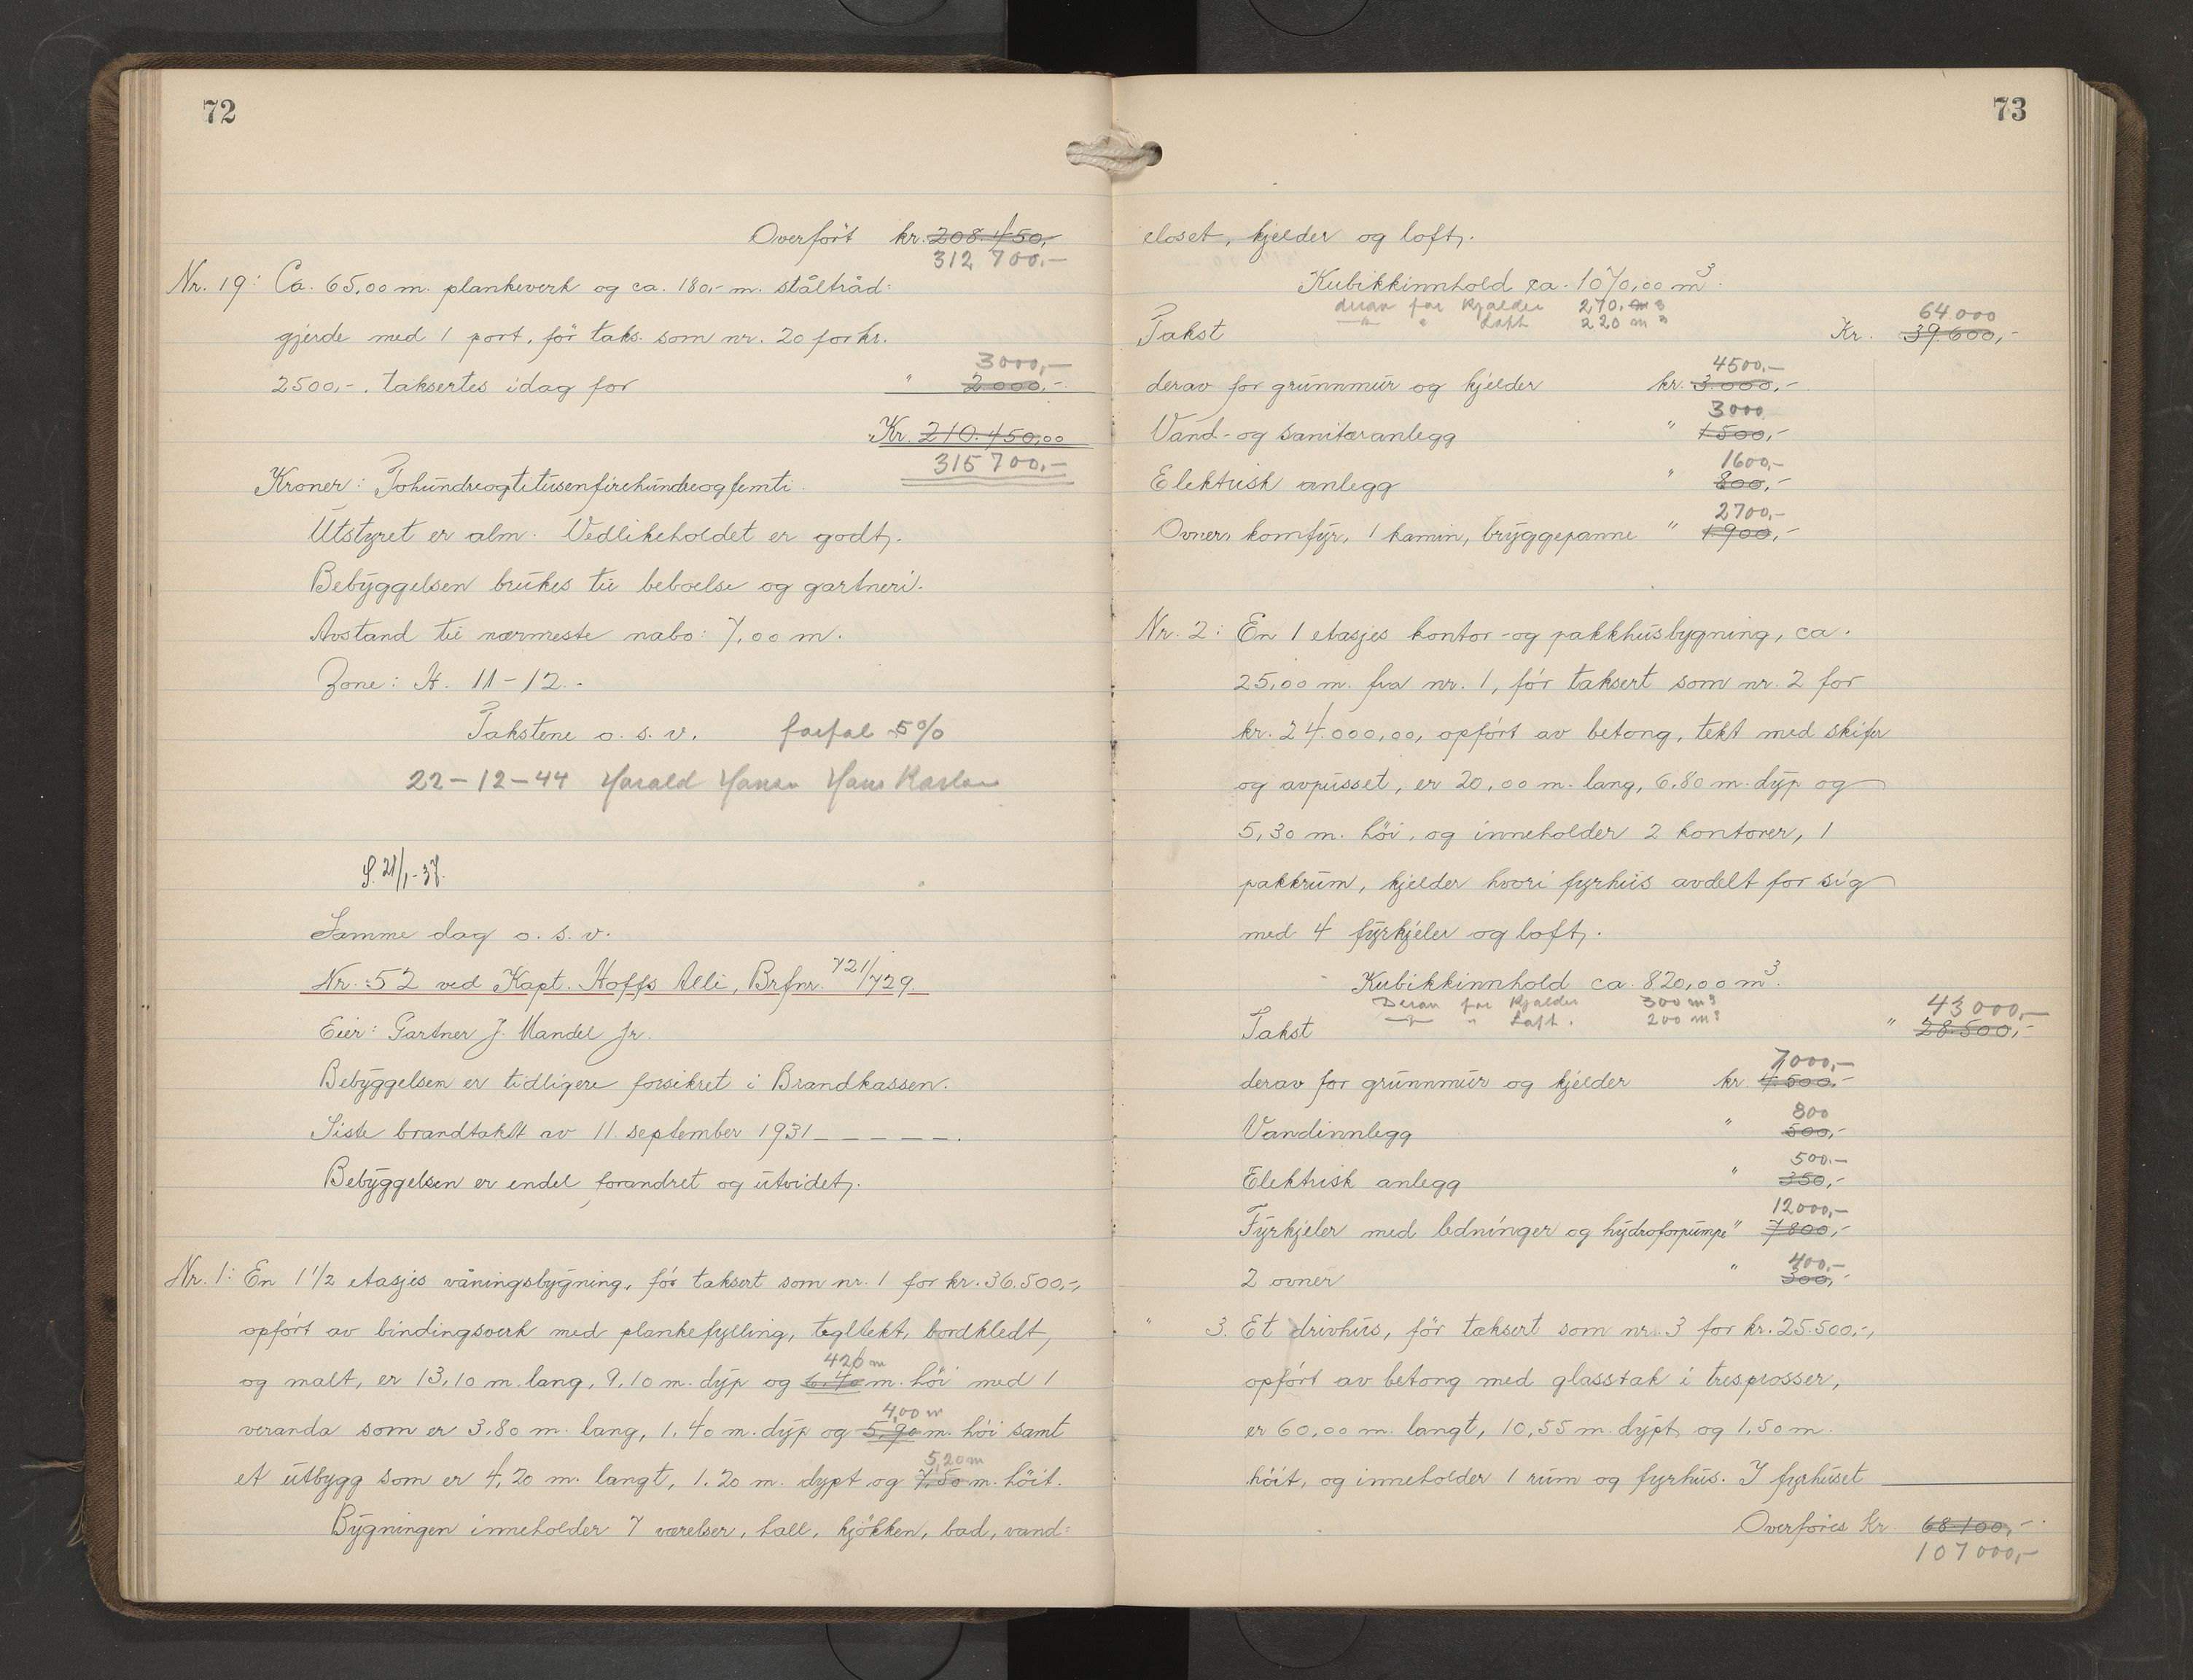 72
Overført kr. 208.450,-
312 700.-
Nr. 19: Ca. 65,00 m. plankeverk og ca. 180,- m. ståltråd-
gjerde med 1 port, før taks. som nr. 20 for kr.
3000,-
2500,-, taksertes idag for " 2000,-
Kr. 210.450,00
315 700,-
Kroner: Tohundreogtitusenfirehundreogfemti.
Utstyret er alm. Vedlikeholdet er godt.
Bebyggelsen brukes til beboelse og gartneri.
Avstand til nærmeste nabo: 7,00 m.
Zone: A. 11-12.-
Takstene o. s. v. forfal 5%
22-12-44 Harald Hansen Hans Karlsen
S. 21/1-37.
Samme dag o. s. v.
Nr. 52 ved Kapt. Hoffs Allé, Brfnr. 721/729.
Eier: Gartner J. Mandel Jr.
Bebyggelsen er tidligere forsikret i Brandkassen.
Siste brandtakst av 11. september 1931 _ _ _ _ _.
Bebyggelsen er endel forandret og utvidet.
Nr. 1: En 1 1/2 etasjes våningsbygning, før taksert som nr. 1 for kr. 36.500,-,
opført av bindingsverk med plankefylling, tegltekt, bordkledt,
420 m
og malt, er 13,10 m. lang, 9,10 m. dyp og 6,40 m. høi med 1
4,00 m
veranda som er 3,80 m. lang, 1,40 m. dyp og 5,90 m. høi samt
5,20 m
et utbygg som er 4,20 m. langt, 1,20 m. dypt og 7,50 m. høit.
Bygningen inneholder 7 værelser, hall, kjøkken, bad, vand-
73
closet, kjelder og loft.
Kubikkinnhold ca. 1070,00 m³.
derav for kjelder 270, m3
-"- " Loft 220 m3
64000
Takst Kr. 39.600,-
4500,-
derav for grunnmur og kjelder kr. 3.000,-
3000
Vand- og sanitæranlegg " 1500,-
1600,-
Elektrisk anlegg " 800,-
2700,-
Ovner, komfyr, 1 kamin, bryggepanne " 1900,-
Nr. 2: En 1 etasjes kontor- og pakkhusbygning, ca.
25,00 m. fra nr. 1, før taksert som nr. 2 for
kr. 24.000,00, opført av betong, tekt med skifer
og avpusset, er 20,00 m. lang, 6,80 m. dyp og
5,30 m. høi, og inneholder 2 kontorer, 1
pakkrum, kjelder hvori fyrhus avdelt for sig
med 4 fyrkjeler og loft.
Kubikkinnhold ca. 820,00 m³.
Derav for Kjelder 300 m3
-"- " Loft. 200 m3
43000,-
Takst " 28.500,-
7000,-
derav for grunnmur og kjelder kr. 4.500,-
800
Vandinnlegg " 500,-
500.-
Elektrisk anlegg " 350,-
12000,-
Fyrkjeler med ledninger og hydroforpumpe " 7800,-
400,-
2 ovner " 300,-
" 3. Et drivhus, før taksert som nr. 3 for kr. 25.500,-,
opført av betong med glasstak i tresprosser,
er 60,00 m. langt, 10,55 m. dypt, og 1,50 m.
høit, og inneholder 1 rum og fyrhus. I fyrhuset
Overføres Kr. 68100,-
107000,-